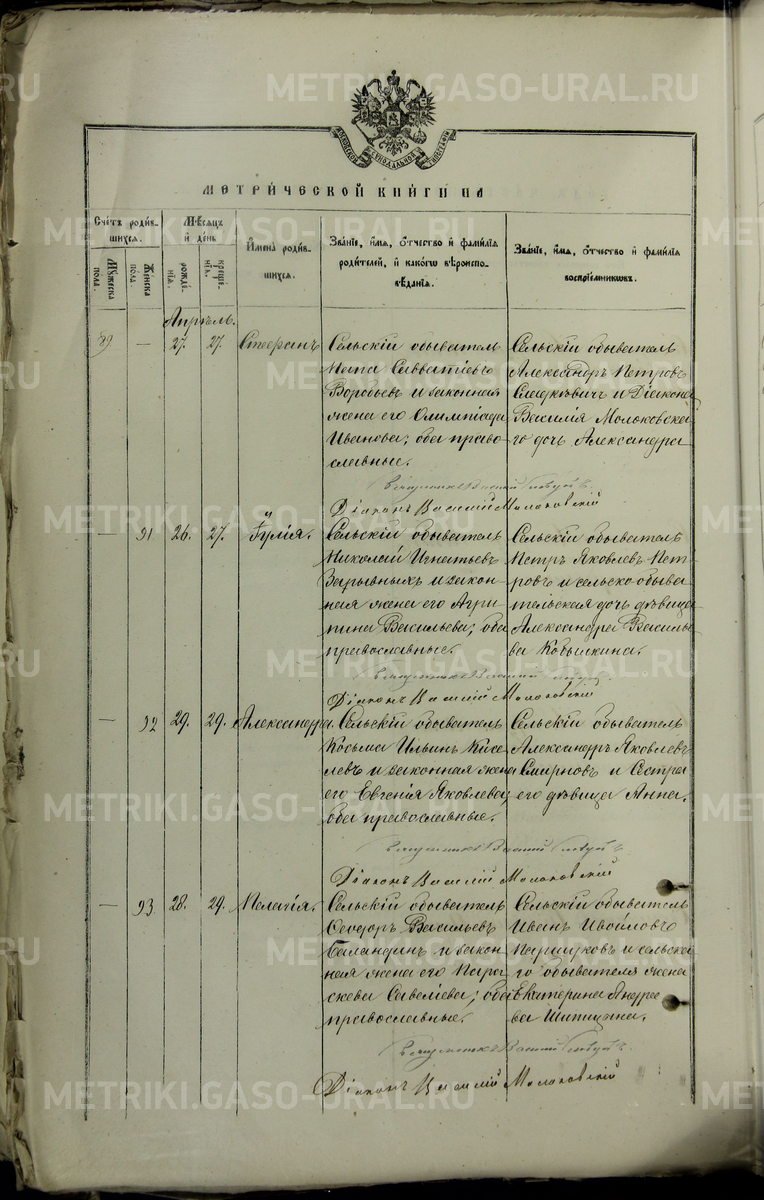 METRIKI.GASO-URAL.RU
МЕТРИЧЕСКОЙ КНИГИ НА
Счетъ родив-
шихся.
Мужеска
пола.
Женска
пола.
Мѣсяцъ
и день
рожде-
нія.
креще-
нія.
Имена родив-
шихся.
Званіе, имя, отчество и фамилія
родителей, и какого вѣроиспо-
вѣданія.
Званіе, имя, отчество и фамилія
воспріемниковъ.
Апрѣль.
89. — 27. 27. Стефанъ
Сельскій обыватель
Савватіевъ
Воробьевъ и законная
жена его Олимпіада
Иванова; оба право-
славные.
Сельскій обыватель
Александръ Петровъ
и Діакона
Василія Молоковска-
го дочь Александра
Діаконъ Василій Молоковскій
— 91 26. 27. Іулія.
Сельскій обыватель
Николай Игнатьевъ
Зарывныхъ и закон-
ная жена его Агри-
пина Васильева; оба
православные.
Сельскій обыватель
Петръ Яковлевъ Пет-
ровъ и сельско-обыва-
тельская дочь дѣвица
Александра Василье-
ва Кобылкина.
Діаконъ Василій Молоковскій
— 92 29. 29. Александра.
Сельскій обыватель
Косьма Ильинъ Кисе-
левъ и законная жена
его Евгенія Яковлева;
оба православные.
Сельскій обыватель
Александръ Яковлевъ
Смирновъ и Сестра
его дѣвица Анна.
Діаконъ Василій Молоковскій
— 93 28. 29. Пелагія.
Сельскій обыватель
Ѳеодоръ Васильевъ
Баландинъ и закон-
ная жена его Пара-
скева Савеліева; оба
православные.
Сельскій обыватель
Иванъ
Паршуковъ и сельска-
го обывателя жена
Екатерина Андрее-
ва Шипицына.
Діаконъ Василій Молоковскій